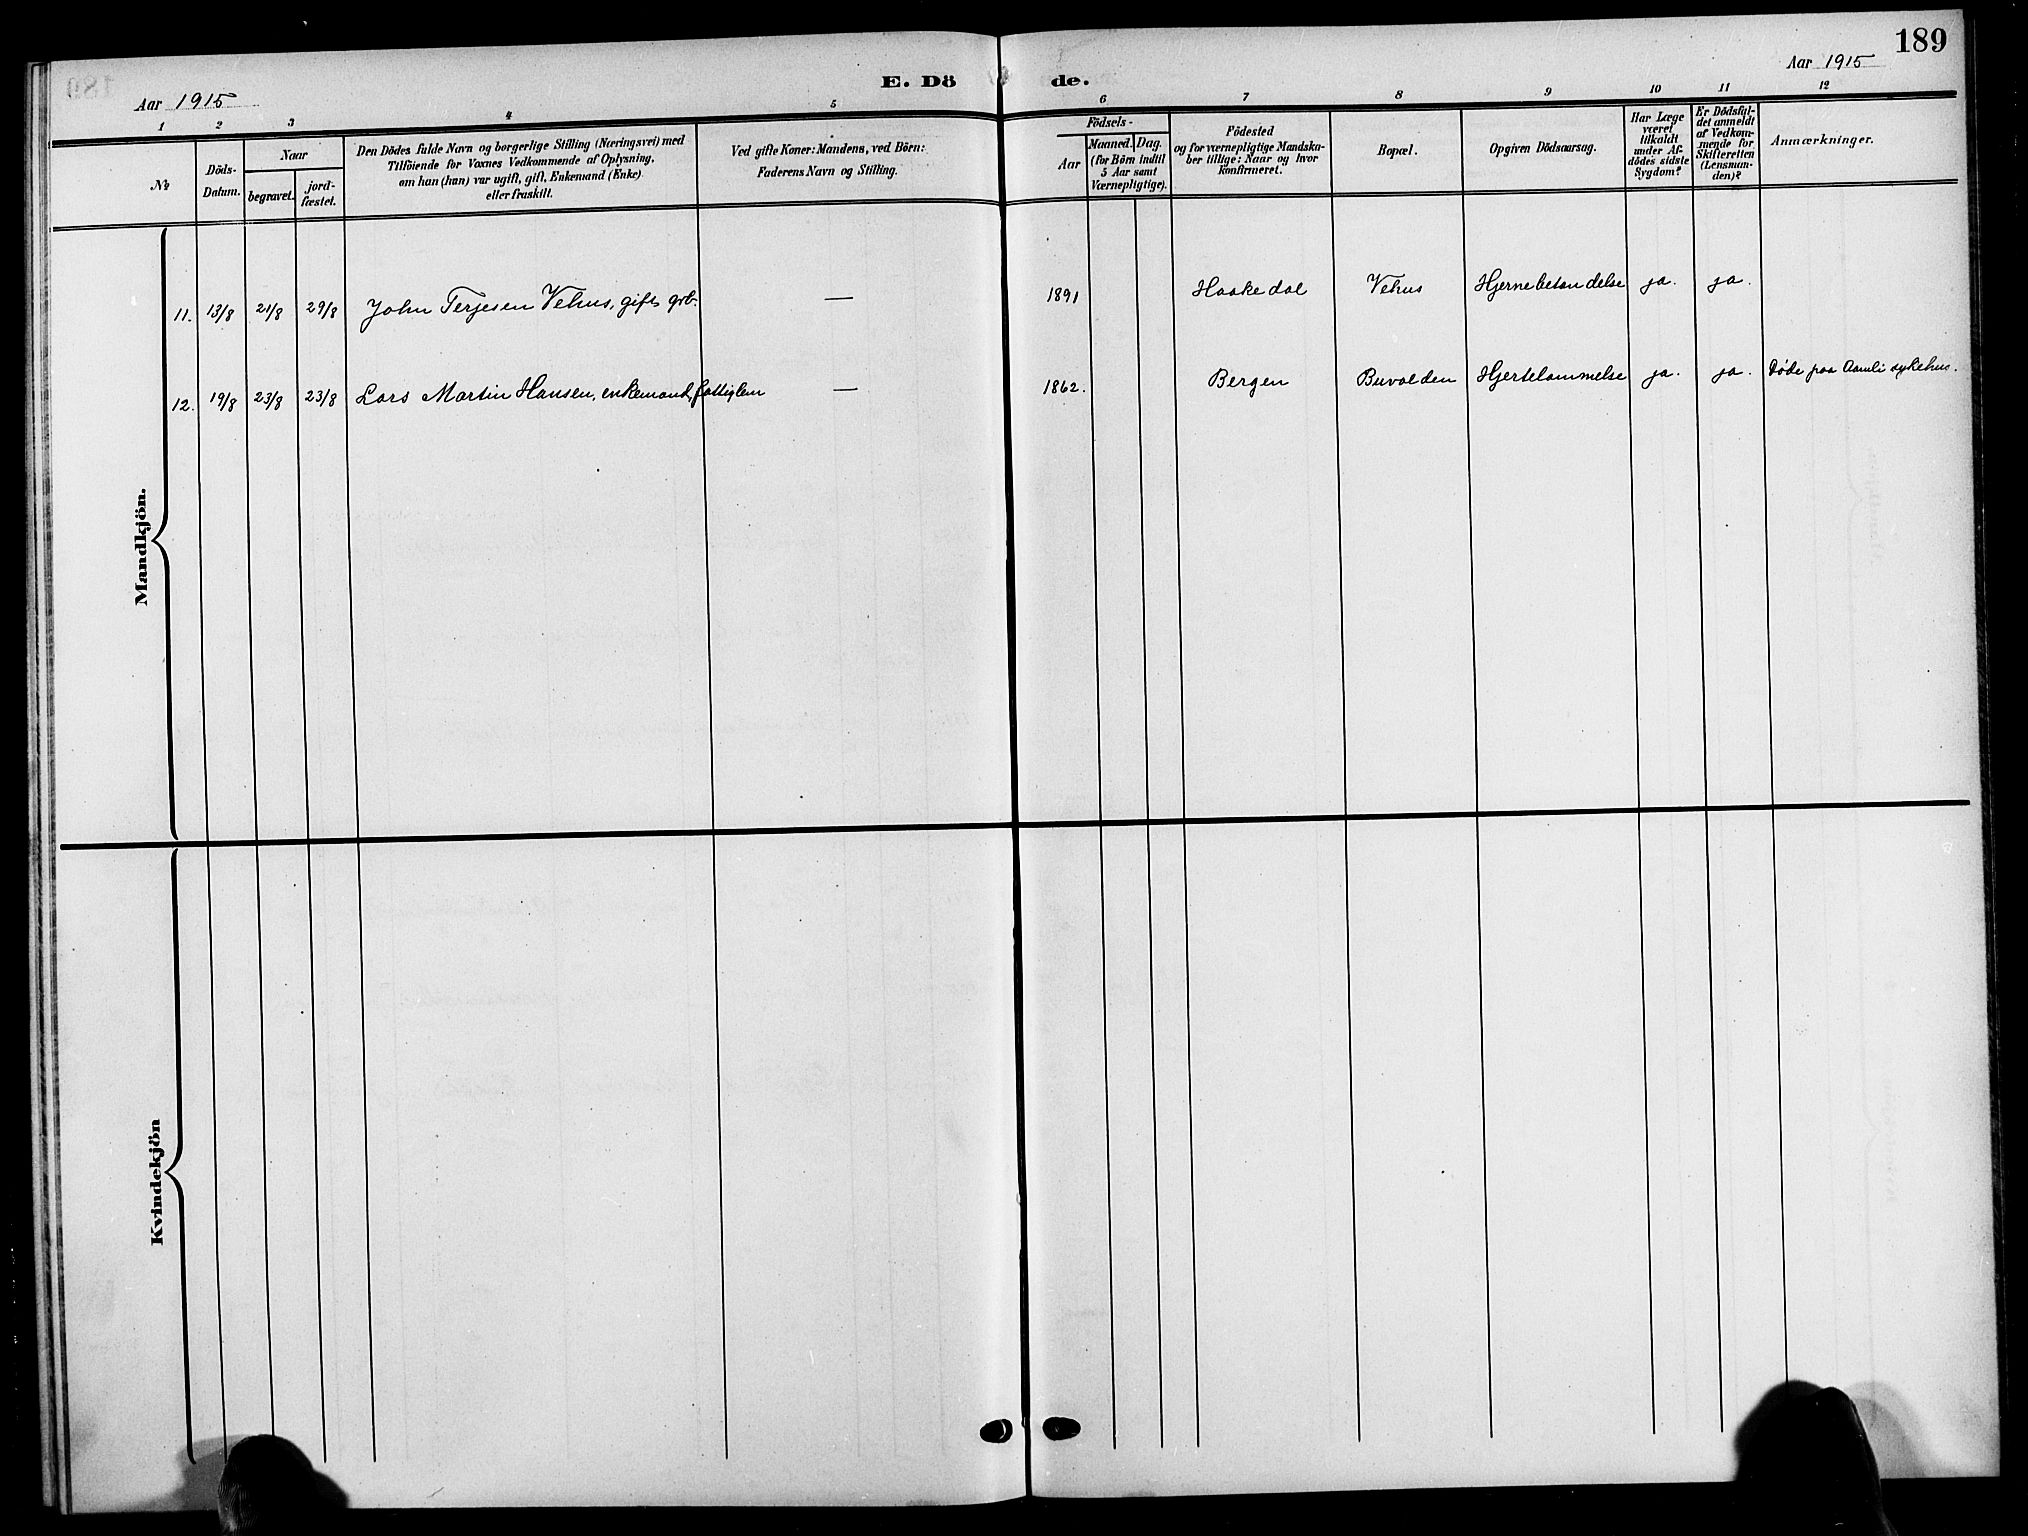 189
E. Dö de.
Aar 1915
Aar 1915
1 2 3 4 5 6 7 8 9 10 11 12
№
Döds-
Datum.
Naar
begravet.
jord-
fæstet.
Den Dödes fulde Navn og borgerlige Stilling (Næringsvei) med
Tilföiende for Voxnes Vedkommende af Oplysning,
om han (hun) var ugift, gift, Enkemand (Enke)
eller fraskilt.
Ved gifte Koner: Mandens, ved Börn:
Faderens Navn og Stilling.
Födsels-
Aar
Maaned. Dag.
(for Börn indtil
5 Aar samt
Værnepligtige).
Födested
og for værnepligtige Mandska-
ber tillige: Naar og hvor
konfirmeret.
Bopæl.
Opgiven Dödsaarsag.
Har Læge
været
tilkaldt
under Af-
dödes sidste
Sygdom?
Er Dödsfal-
det anmeldt
af Vedkom-
mende for
Skifteretten
(Lensman-
den)?
Anmærkninger.
Mandkjön.
11. 13/8 21/8 29/8 John Terjesen Vehus, gift grb. — 1891 Haakedal Vehus Hjernebetændelse ja. ja.
12. 19/8 23/8 23/8 Lars Martin Hansen, enkemand, fattiglem — 1862. Bergen Buvolden Hjertelammelse ja. ja. Døde paa Aamli sykehus.
Kvindekjön